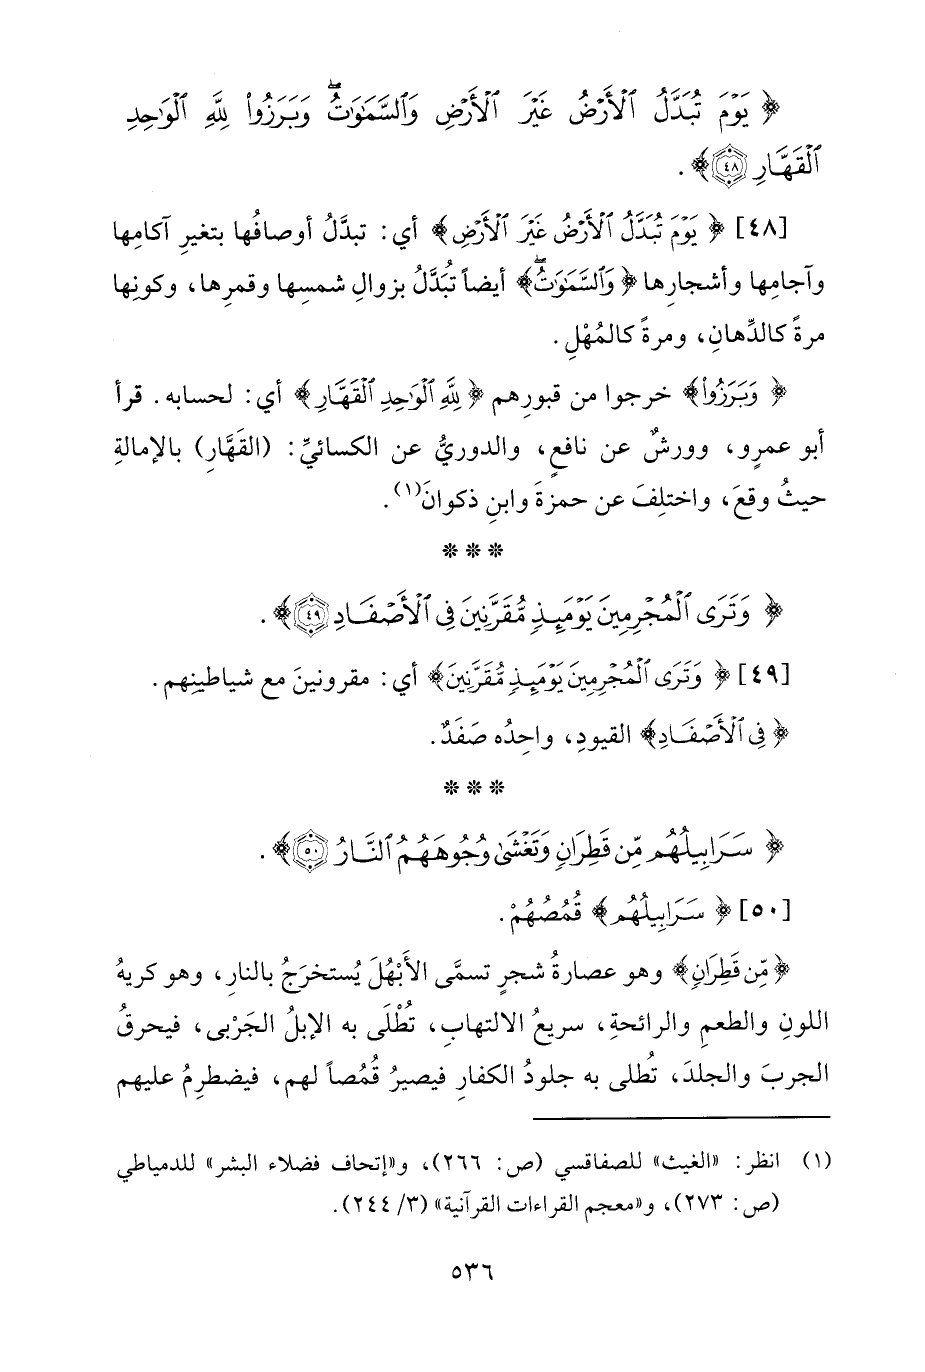 ﴿ يَوْمَ تُبَدَّلُ ٱلْأَرْضُ غَيْرَ ٱلْأَرْضِ وَٱلسَّمَٰوَٰتُ ۖ وَبَرَزُوا۟ لِلَّهِ ٱلْوَٰحِدِ
ٱلْقَهَّارِ ٤٨ ﴾ .
[٤٨] ﴿ يَوْمَ تُبَدَّلُ ٱلْأَرْضُ غَيْرَ ٱلْأَرْضِ ﴾ أي: تبدَّلُ أوصافُها بتغيرِ آكامِها
وآجامِها وأشجارِها ﴿ وَٱلسَّمَٰوَٰتُ ۖ ﴾ أيضاً تُبَدَّلُ بزوالِ شمسِها وقمرِها، وكونِها
مرةً كالدِّهانِ، ومرةً كالمُهْلِ.
﴿ وَبَرَزُوا۟ ﴾ خرجوا من قبورِهم ﴿ لِلَّهِ ٱلْوَٰحِدِ ٱلْقَهَّارِ ﴾ أي: لحسابه. قرأ
أبو عمرٍو، وورشٌ عن نافعٍ، والدوريُّ عن الكسائيِّ: (القَهَّارِ) بالإمالةِ
حيثُ وقعَ، واختلِفَ عن حمزةَ وابنِ ذكوانَ(١).
* * *
﴿ وَتَرَى ٱلْمُجْرِمِينَ يَوْمَئِذٍ مُّقَرَّنِينَ فِى ٱلْأَصْفَادِ ٤٩ ﴾ .
[٤٩] ﴿ وَتَرَى ٱلْمُجْرِمِينَ يَوْمَئِذٍ مُّقَرَّنِينَ ﴾ أي: مقرونينَ مع شياطينِهم.
﴿ فِى ٱلْأَصْفَادِ ﴾ القيودِ، واحِدُه صَفَدٌ.
* * *
﴿ سَرَابِيلُهُم مِّن قَطِرَانٍ وَتَغْشَىٰ وُجُوهَهُمُ ٱلنَّارُ ٥٠ ﴾ .
[٥٠] ﴿ سَرَابِيلُهُم ﴾ قُمُصُهُمْ.
﴿ مِّن قَطِرَانٍ ﴾ وهو عصارةُ شجرٍ تسمَّى الأَبْهُلَ يُستخرَجُ بالنارِ، وهو كريهُ
اللونِ والطعمِ والرائحةِ، سريعُ الالتهابِ، تُطْلَى به الإبلُ الجَرْبى، فيحرقُ
الجربَ والجلدَ، تُطلى به جلودُ الكفارِ فيصيرُ قُمُصاً لهم، فيضطرِمُ عليهم
(١) انظر: «الغيث» للصفاقسي (ص: ٢٦٦)، و«إتحاف فضلاء البشر» للدمياطي
(ص: ٢٧٣)، و«معجم القراءات القرآنية» (٣/ ٢٤٤).
٥٣٦